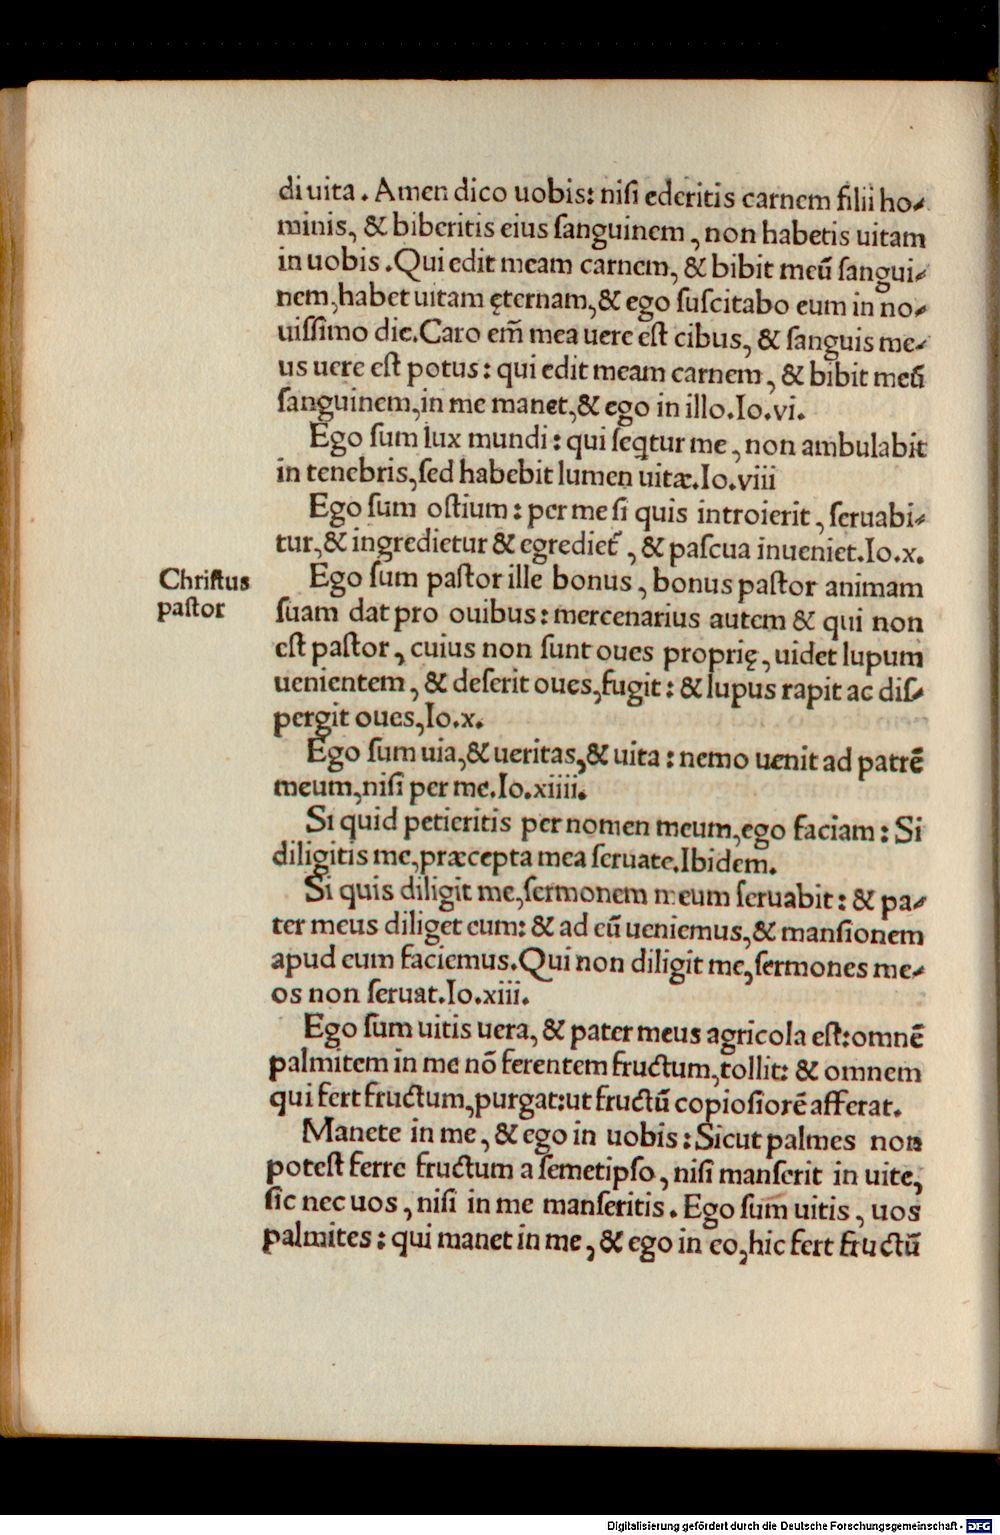 di uita . Amen dico uobis: niſi ederitis carnem filii ho⸗
minis, & biberitis eius ſanguinem , non habetis uitam
in uobis . Qui edit meam carnem, & bibit meū ſangui⸗
nem, habet uitam ęternam, & ego ſuſcitabo eum in no⸗
uiſſimo die. Caro em̄ mea uere eſt cibus, & ſanguis me⸗
us uere eſt potus : qui edit meam carnem , & bibit meū
ſanguinem, in me manet, & ego in illo. Io. vi.
Ego ſum lux mundi : qui ſeqtur me , non ambulabit
in tenebris, ſed habebit lumen uitæ. Io. viii
Ego ſum oſtium : per me ſi quis introierit , ſeruabi⸗
tur, & ingredietur & egrediet᷑ , & paſcua inueniet. Io. x.
Christus
pastor
Ego ſum paſtor ille bonus , bonus paſtor animam
ſuam dat pro ouibus : mercenarius autem & qui non
eſt paſtor , cuius non ſunt oues proprię , uidet lupum
uenientem , & deſerit oues, fugit : & lupus rapit ac diſ⸗
pergit oues, Io. x.
Ego ſum uia, & ueritas, & uita : nemo uenit ad patrē
meum, niſi per me. Io. xiiii.
Si quid petieritis per nomen meum, ego faciam : Si
diligitis me, præcepta mea ſeruate. Ibidem.
Si quis diligit me, ſermonem meum ſeruabit : & pa⸗
ter meus diliget eum: & ad eū ueniemus, & manſionem
apud eum faciemus. Qui non diligit me, ſermones me⸗
os non ſeruat. Io. xiii.
Ego ſum uitis uera, & pater meus agricola eſt: omnē
palmitem in me nō ferentem fructum, tollit: & omnem
qui fert fructum, purgat: ut fructū copioſiorē afferat.
Manete in me , & ego in uobis : Sicut palmes non
poteſt ferre fructum a ſemetipſo , niſi manſerit in uite,
ſic nec uos , niſi in me manſeritis . Ego ſum uitis , uos
palmites : qui manet in me , & ego in eo, hic fert fructū
Digitalisierung gefördert durch die Deutsche Forschungsgemeinschaft - DFG